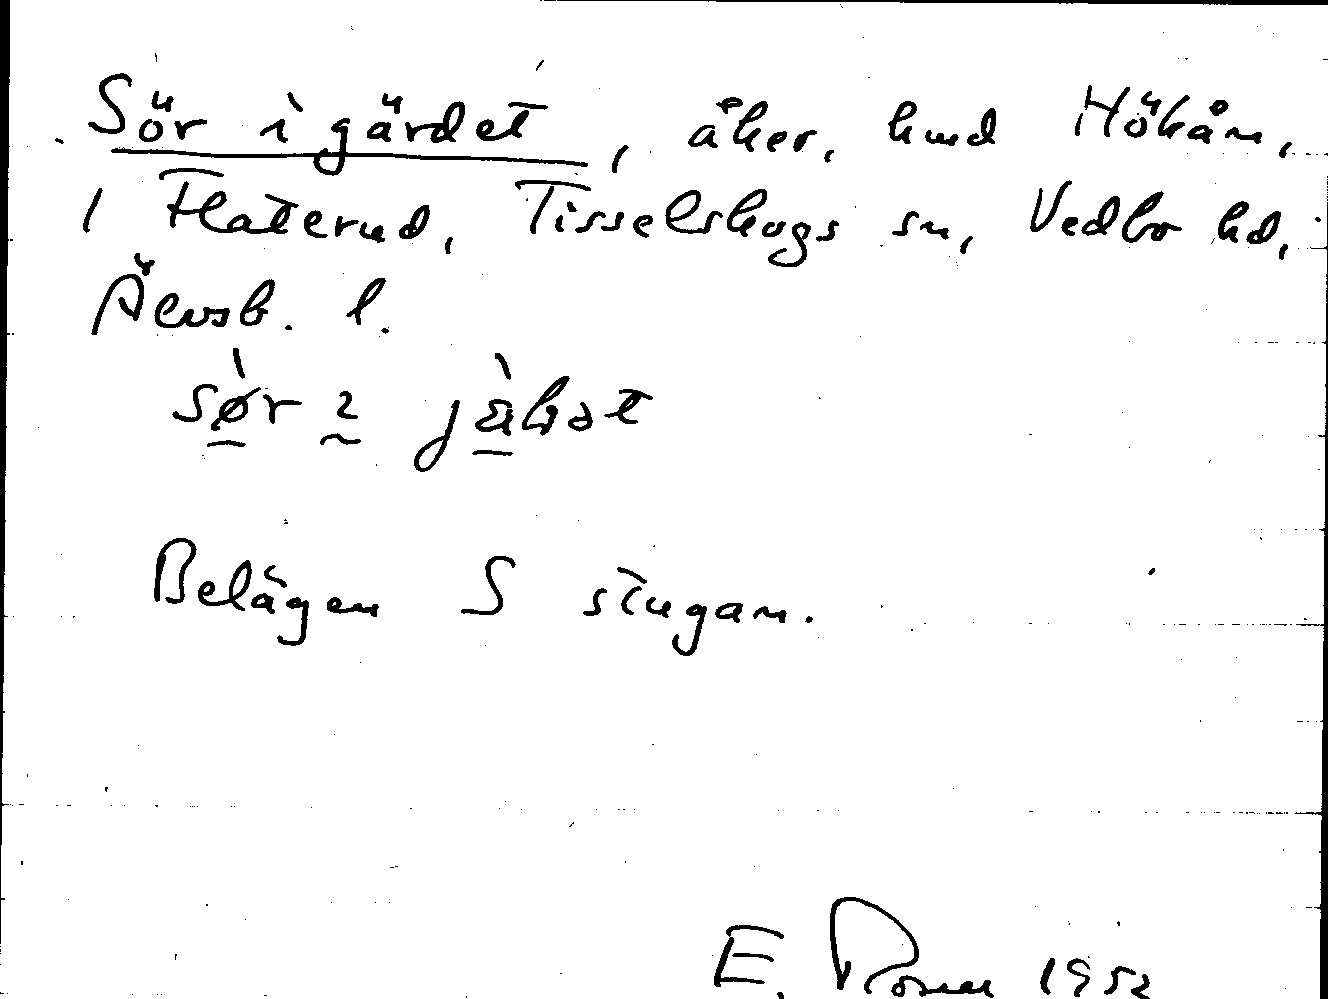 Sör i gärdet, åker, hmd Hökån,
1 Flaterud, Tisselskogs sn, Vedbo hd,
Älvsb. l.
Belägen S stugan.
E. 1952